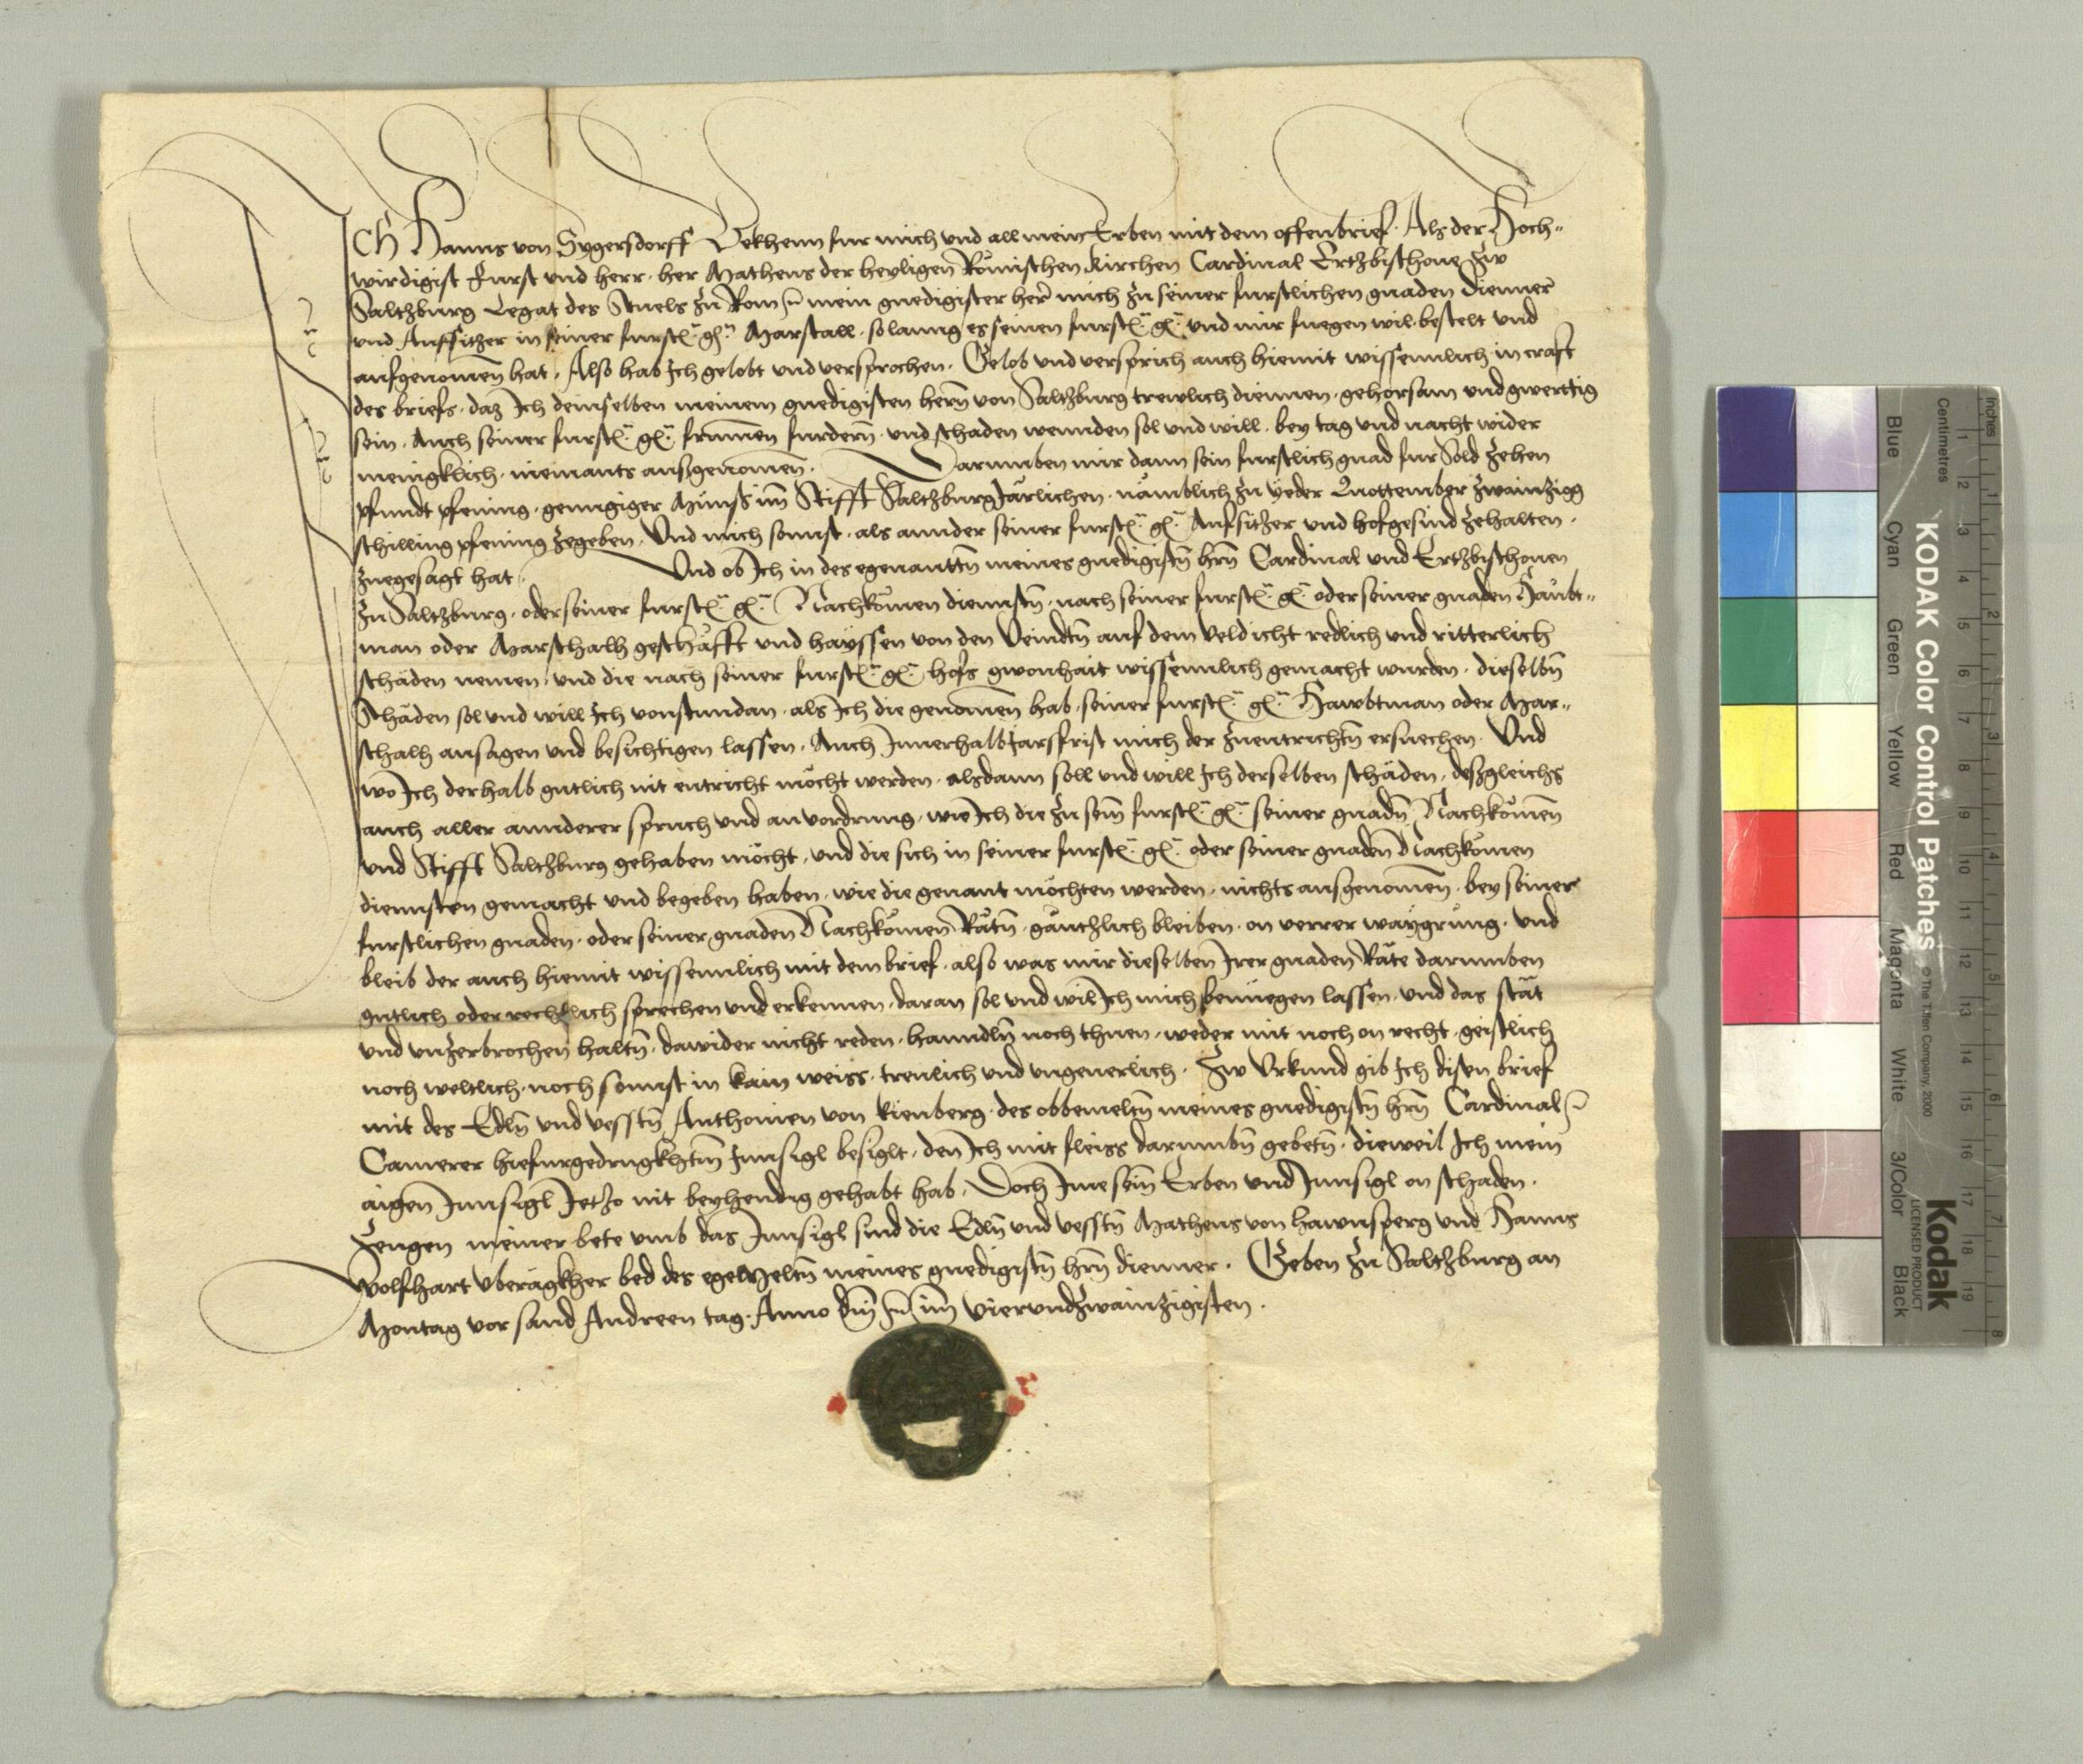 Ich Hanns von Sygersdorff Bekhenn fur mich vnd all mein Erben mit dem offenbrief. Als der Hoch-
wirdigist Furst vnd herr. her Matheus der heyligen Römischen kirchen Cardinal Ertzbischoue zw
Saltzburg Legat des Stuels zu Rom (etc) mein gnedigister her mich zu seiner furstlichen gnaden Dienner
vnd Auffsitzer in seiner furstl. gl. Marstall. solanng es seinen furstl. gl. vnd mir fuegen wil. bestelt vnd
aufgenomen hat. Also hab Ich gelobt vnd versprochen. Gelob vnd versprich auch hiemit wissennlich in crafft
des briefs. daz Ich demselben meinem gnedigisten hern von Saltzburg trewlich diennen. gehorsam vnd gwerttig
sein. Auch seiner furstl. gl. frummen furdern. vnd schaden wennden sol vnd will. bey tag vnd nacht wider
menigklich. niemants außgenomen. Darumben mir dann sein furstlich gnad fur Sold zehen
pfundt pfening. genngiger Münß im Stifft Saltzburg Järlichen. nämblich zu yeder Quottember zwainzigg
schilling pfening zegeben. Vnd mich sonnst. als annder seiner furstl. gl. Aufsitzer vnd hofgesind zehalten.
zuegesagt hat. Vnd ob Ich in des egenantn meines gnedigistn hrn Cardinal vnd Ertzbischouen
zu Saltzburg. oder seiner furstl. gl. Nachkomen diennstn. nach seiner furstl. gl. oder seiner gnaden Haubt-
man oder Marschalh geschäfft vnd hayssen von den Veindtn auf dem Veld icht redlich vnd ritterlich
schäden nemen. vnd die nach seiner furstl. gl. hofs gwonhait wissennlich gemacht wurden. dieselbn
Schäden sol vnd will Ich vonstundan. als Ich die genomen hab. seiner furstl. gl. Hawbtman oder Mar-
schalh ansagen vnd besichtigen lassen. Auch Innerhalb Jarsfrist mich der zuentrichtn ersuechen. Vnd
wo Ich derhalb gutlich nit entricht möcht werden. alsdann soll vnd will Ich derselben schäden. deßgleichs
auch aller annderer spruch vnd anvordrung. wie Ich die zu sein furstl. gl. seiner gnadn Nachkomen
vnd Stifft Saltzburg gehaben möcht. vnd die sich in seiner furstl. gl. oder seiner gnaden Nachkomen
diennsten gemacht vnd begeben haben. wie die genant möchten werden. nichts ausgenomen. bey seiner
furstlichen gnaden. oder seiner gnaden Nachkomen Rätn. gäntzlich bleiben. on verrer waygrung. Vnd
bleib der auch hiemit wissennlich mit dem brief. also was mir dieselben Irer gnaden Räte darumben
gutlich oder rechtlich sprechen vnd erkennen. daran sol vnd wil Ich mich benüegen lassen. vnd das stät
vnd vnzerbrochen haltn. dawider nicht reden. hanndln noch thuen. weder mit noch on recht. geistlich
noch weltlich. noch sonnst in kain weiss. treulich vnd vngeuerlich. Zw Vrkund gib Ich disen brief
mit des Edln vnd vesstn Anthonien von kienberg. des obbemeltn meines gnedigistn hrn Cardinal (etc)
Camerer hiefurgedrugkhtm Innsigl besiglt. den Ich mit fleiss darumbn gebetn. dieweil Ich mein
aigen Innsigl Jetzo nit beyhendig gehabt hab. Doch Ime sein Erben vnd Innsigl on schaden.
Zeugen meiner bete vmb das Innsigl sind die Edln vnd vesstn Matheus von hawnsperg vnd Hanns
Wolfhart vberagkher bed des egemeltn meines gnedigistn hrn dienner. Geben zu Saltzburg an
Montag vor sand Andreen tag. Anno dm (etc) im Vierundzwainzigisten.
KODAK Color Control Patches
© The Tiffen Company, 2000
Kodak
LICENSED PRODUCT
Blue Cyan Green Yellow Red Magenta White 3/Color Black
Inches 1 2 3 4 5 6 7 8
Centimetres 1 2 3 4 5 6 7 8 9 10 11 12 13 14 15 16 17 18 19